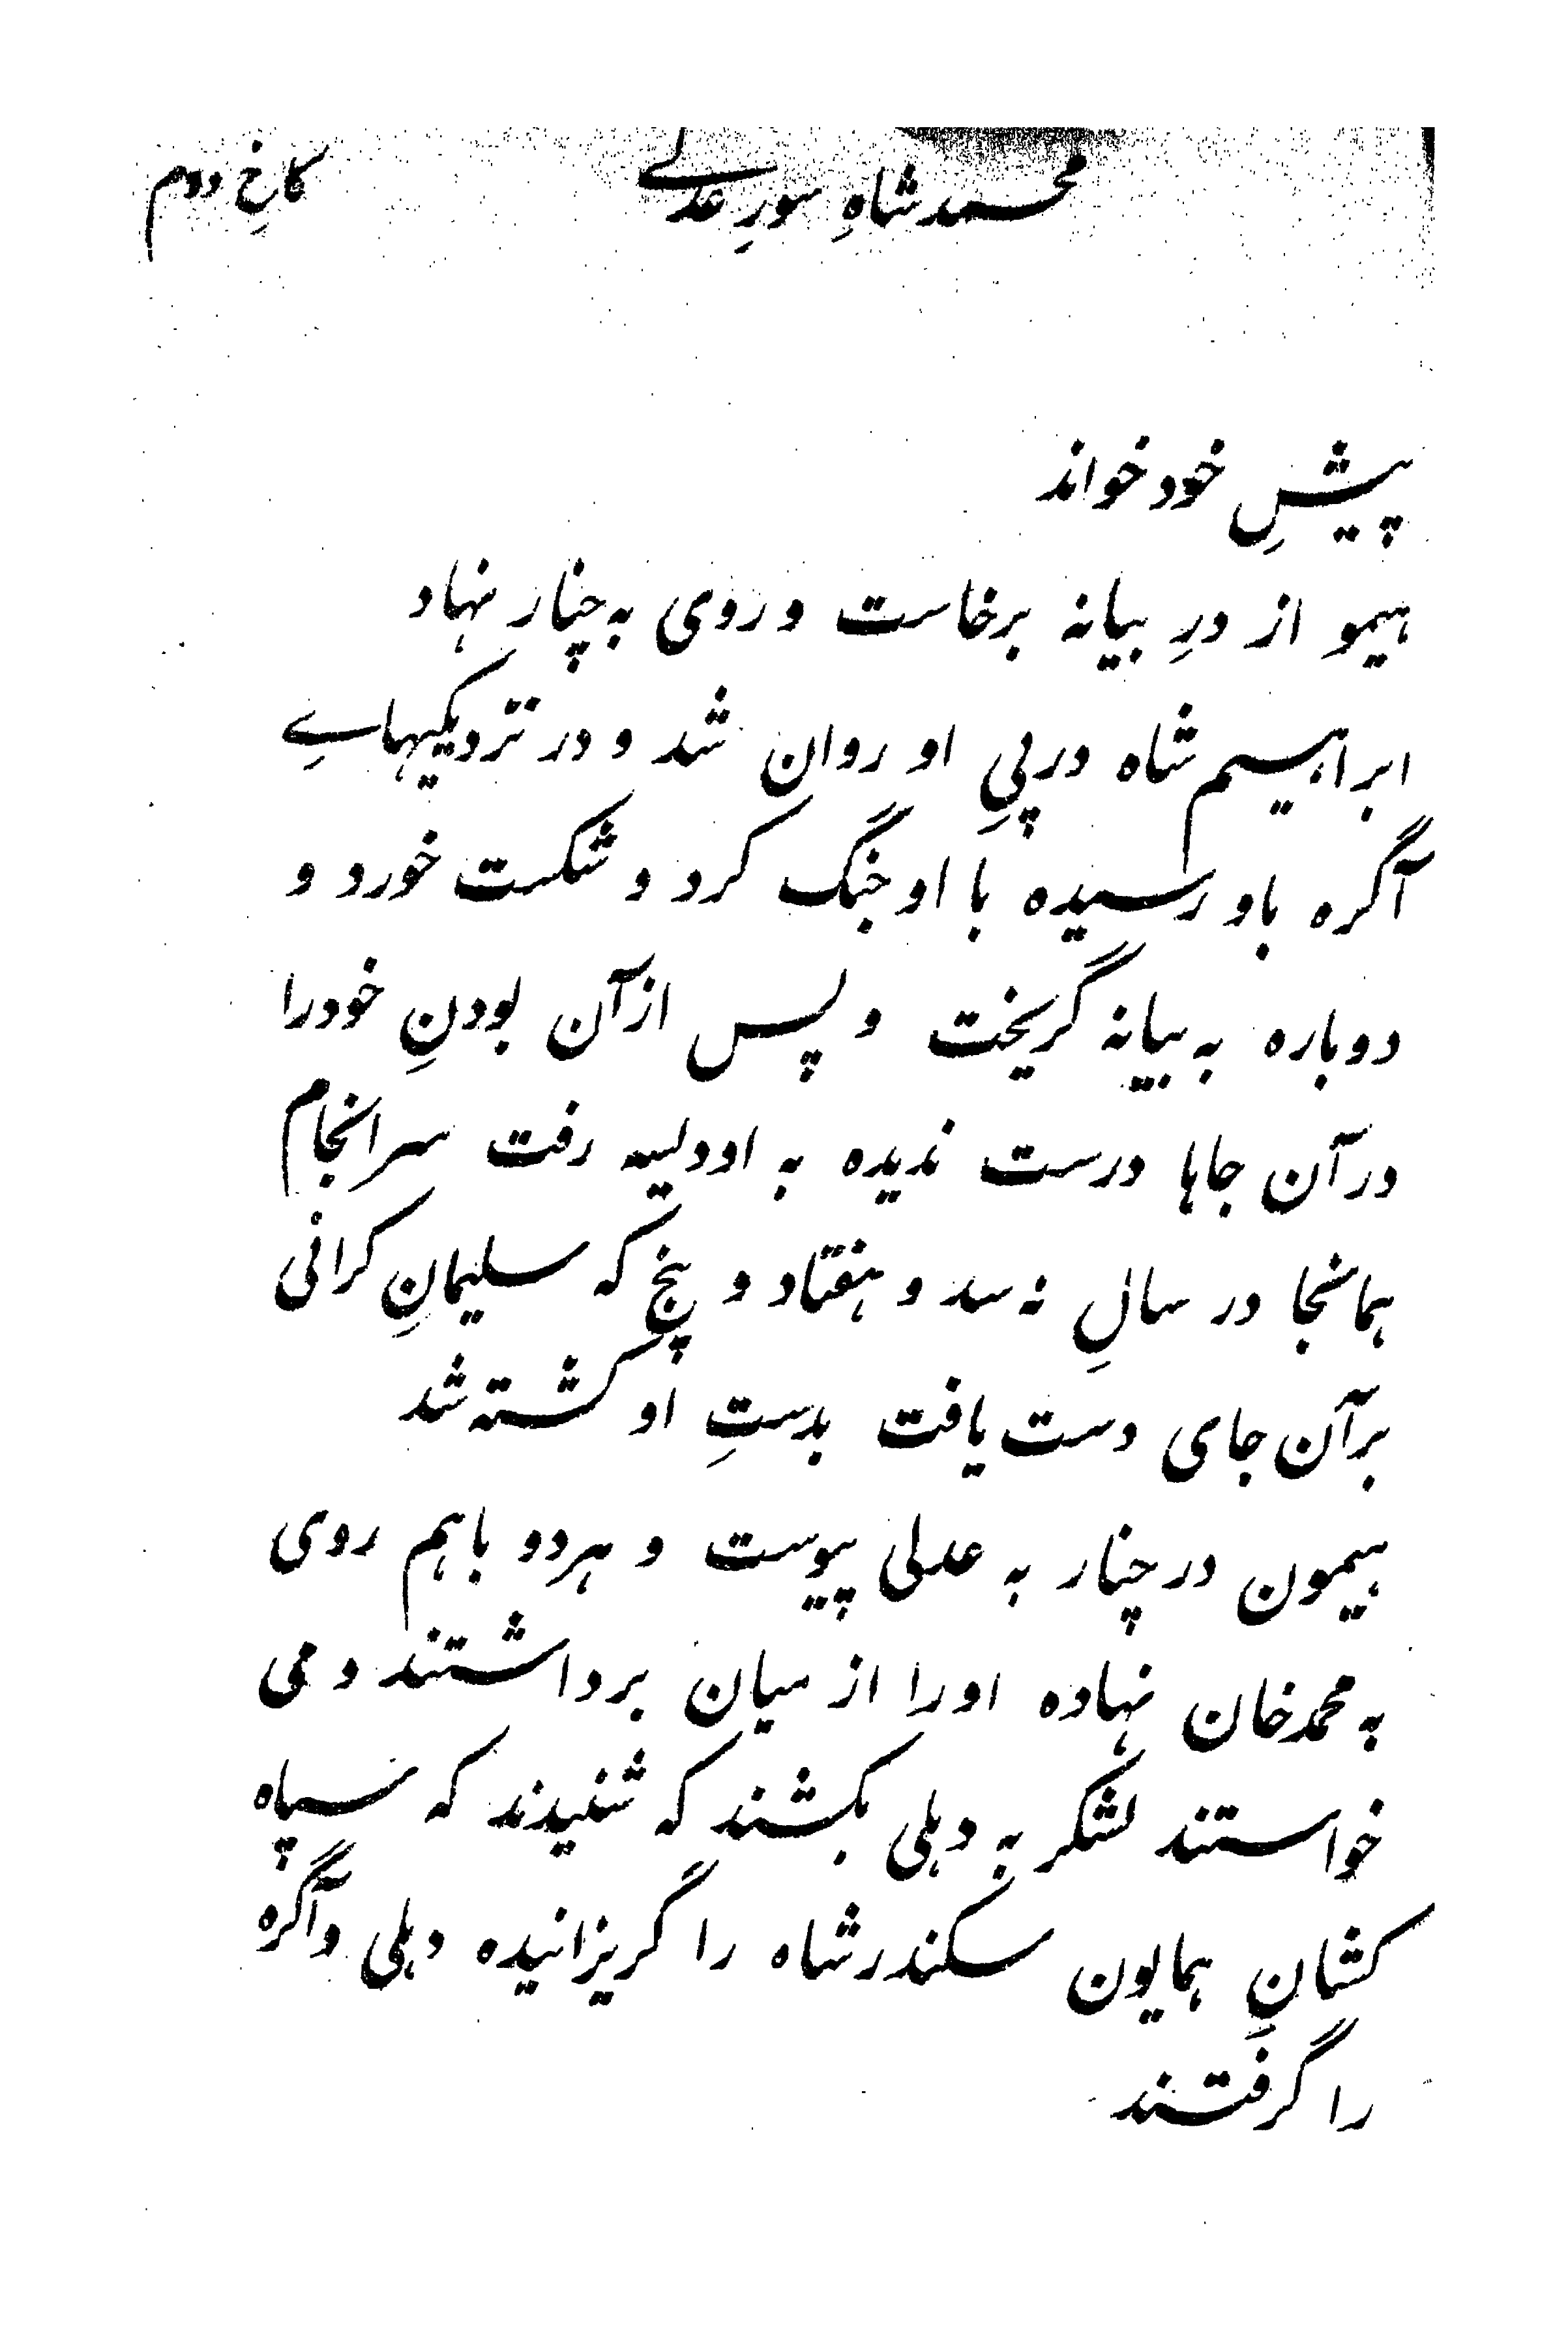 محمد شاهِ سورِ عدلے کاخِ دوم
پیشِ خود خواند
هیمو از درِ بیانه برخاست و روی به چنار نهاد
ابراهیم شاه در پیِ او روان شد و در نزدیکیهاےِ
آگره باو رسیده با او جنگ کرد و شکست خورد و
دوباره به بیانه گریخت و پس از آن بودنِ خود را
در آن جاها درست ندیده به اودیسه رفت سرانجام
همانجا در سالِ نه سد و هفتاد و پنج که سلیمانِ کرانی
بر آن جای دست یافت بدستِ او کشته شد
هیمون در چنار به عدلی پیوست و هر دو باهم روی
به محمد خان نهاده او را از میان برداشتند و می
خواستند لشکر به دهلی بکشند که شنیدند که سپاه
کشانِ همایون سکندر شاه را گریزانیده دهلی و آگره
را گرفتند